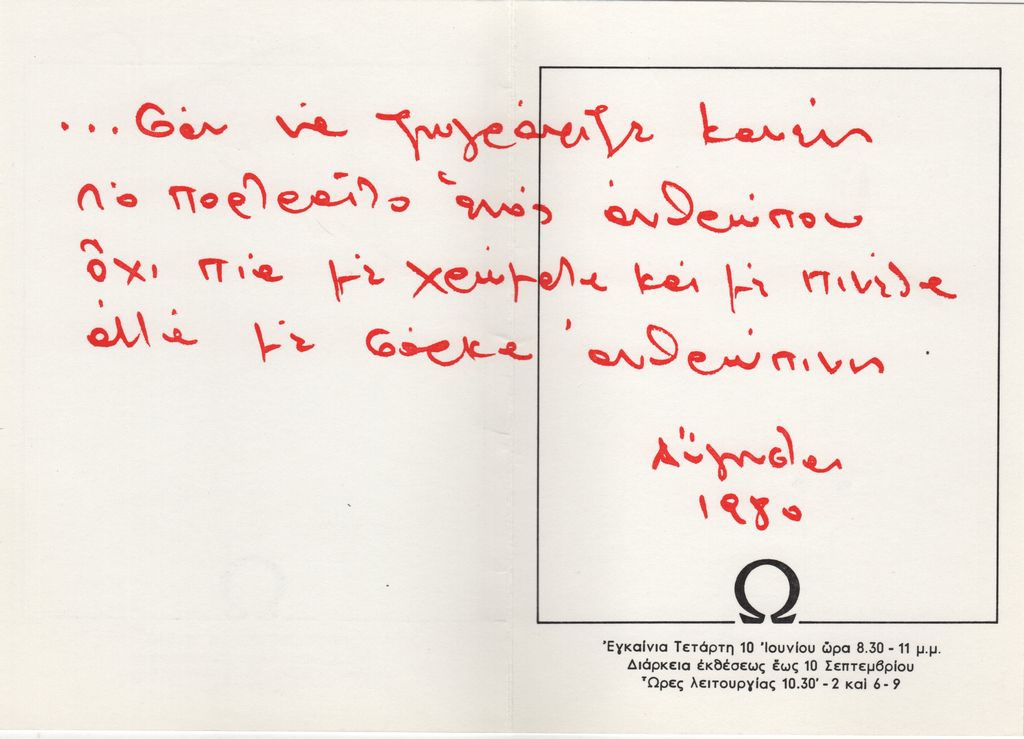 ...σὰν νὰ ζωγράφιζε κανεὶς
τὸ πορτραῖτο ἑνὸς ἀνθρώπου
ὄχι πιὰ μὲ χρώματα καὶ μὲ πινέλα
ἀλλὰ μὲ σάρκα ἀνθρώπινη
1980
Ω
Ἐγκαίνια Τετάρτη 10 Ἰουνίου ὥρα 8.30 - 11 μ.μ.
Διάρκεια ἐκθέσεως ἕως 10 Σεπτεμβρίου
Ὧρες λειτουργίας 10.30' - 2 καὶ 6 - 9